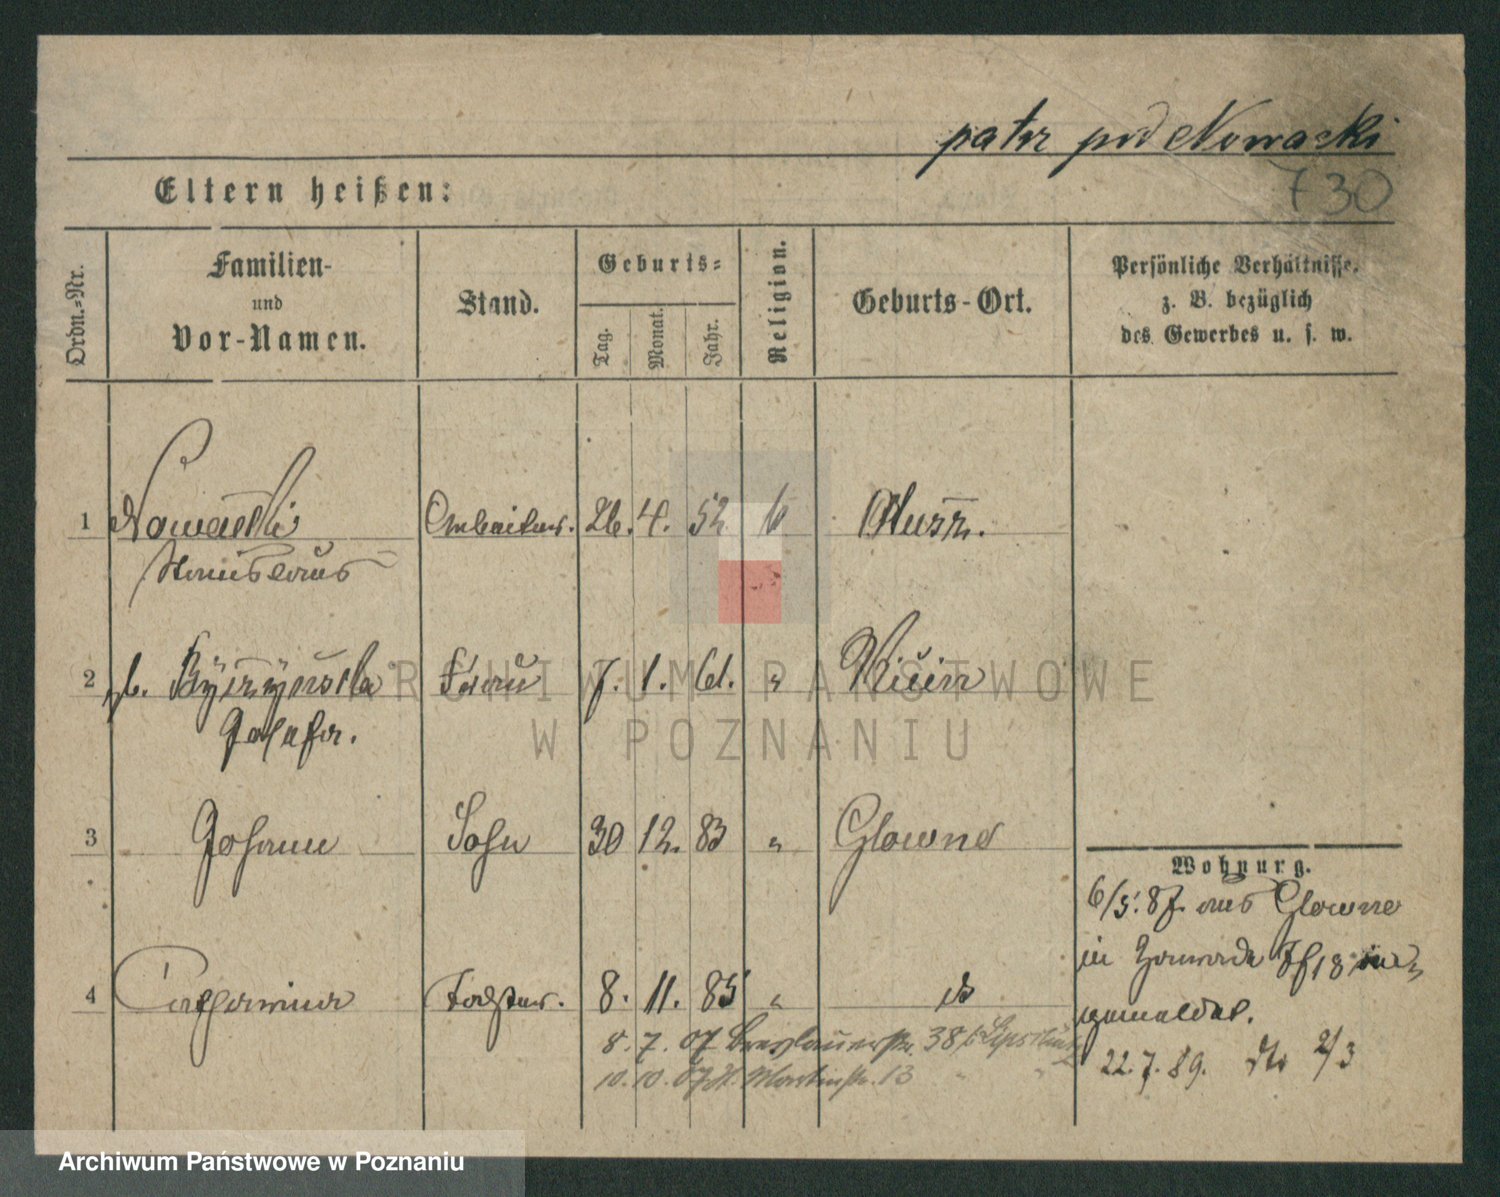 patr. pod Nowacki
730
Eltern heißen:
Ordn.-Nr.
Familien-
und
Vor-Namen.
Stand.
Geburts-
Tag.
Monat.
Jahr.
Religion.
Geburts-Ort.
Persönliche Verhältnisse.
z. B. bezüglich
des Gewerbes u. s. w.
1 Nowacki Arbeiter. 26. 4. 52 k
Stanislaus
2 gb. Frau 7. 1. 61. "
Josefa.
3 Johann Sohn 30 12. 83 " Glowno
Wohnung.
6/5. 87. aus Glowno
in Zawade
gemeldet.
4 Catharina Tochter. 8. 11. 85 " do
8. 7. 07 Breslauerstr. 38
10. 10. 07 St. Martinstr. 13
22. 7. 89. dto 2/3
ARCHIWUM PAŃSTWOWE
W POZNANIU
Archiwum Państwowe w Poznaniu